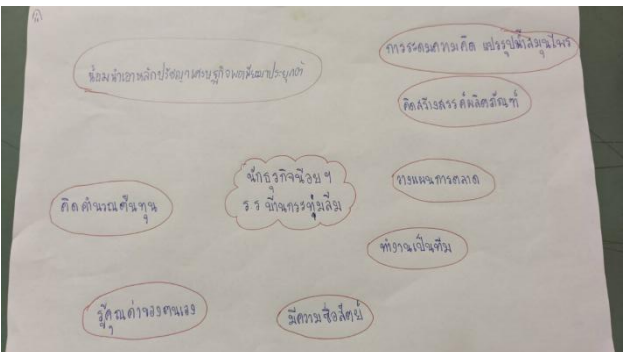 น้อมนำเอาหลักปรัชญาเศรษฐกิจพอเพียงมาประยุกต์ใช้
การระดมความคิด แปรรูปน้ำสมุนไพร
คิดสร้างสรรค์ผลิตภัณฑ์
นักธุรกิจน้อย ฯ
ร ร บ้านกระทุ่มล้ม
วางแผนการตลาด
คิดคำนวณต้นทุน
ทำงานเป็นทีม
รู้คุณค่าของตนเอง
มีความซื่อสัตย์